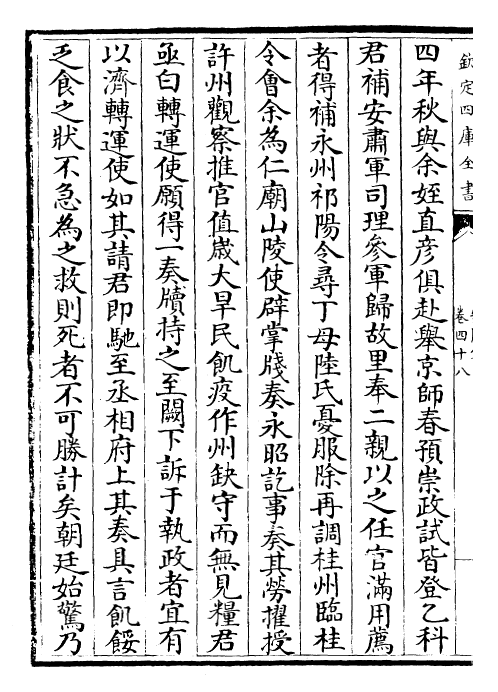 欽定四庫全書
卷四十八
四年秋與余姪直彦俱赴舉京師春預崇政試皆登乙科
君補安肅軍司理參軍歸故里奉二親以之任官滿用薦
者得補永州祁陽令尋丁母陸氏憂服除再調桂州臨桂
令會余為仁廟山陵使辟掌牋奏永昭訖事奏其勞擢授
許州觀察推官值歲大旱民飢疫作州缺守而無見糧君
亟白轉運使願得一奏牘持之至闕下訴于執政者宜有
以濟轉運使如其請君即馳至丞相府上其奏具言飢餒
乏食之狀不急為之救則死者不可勝計矣朝廷始驚乃